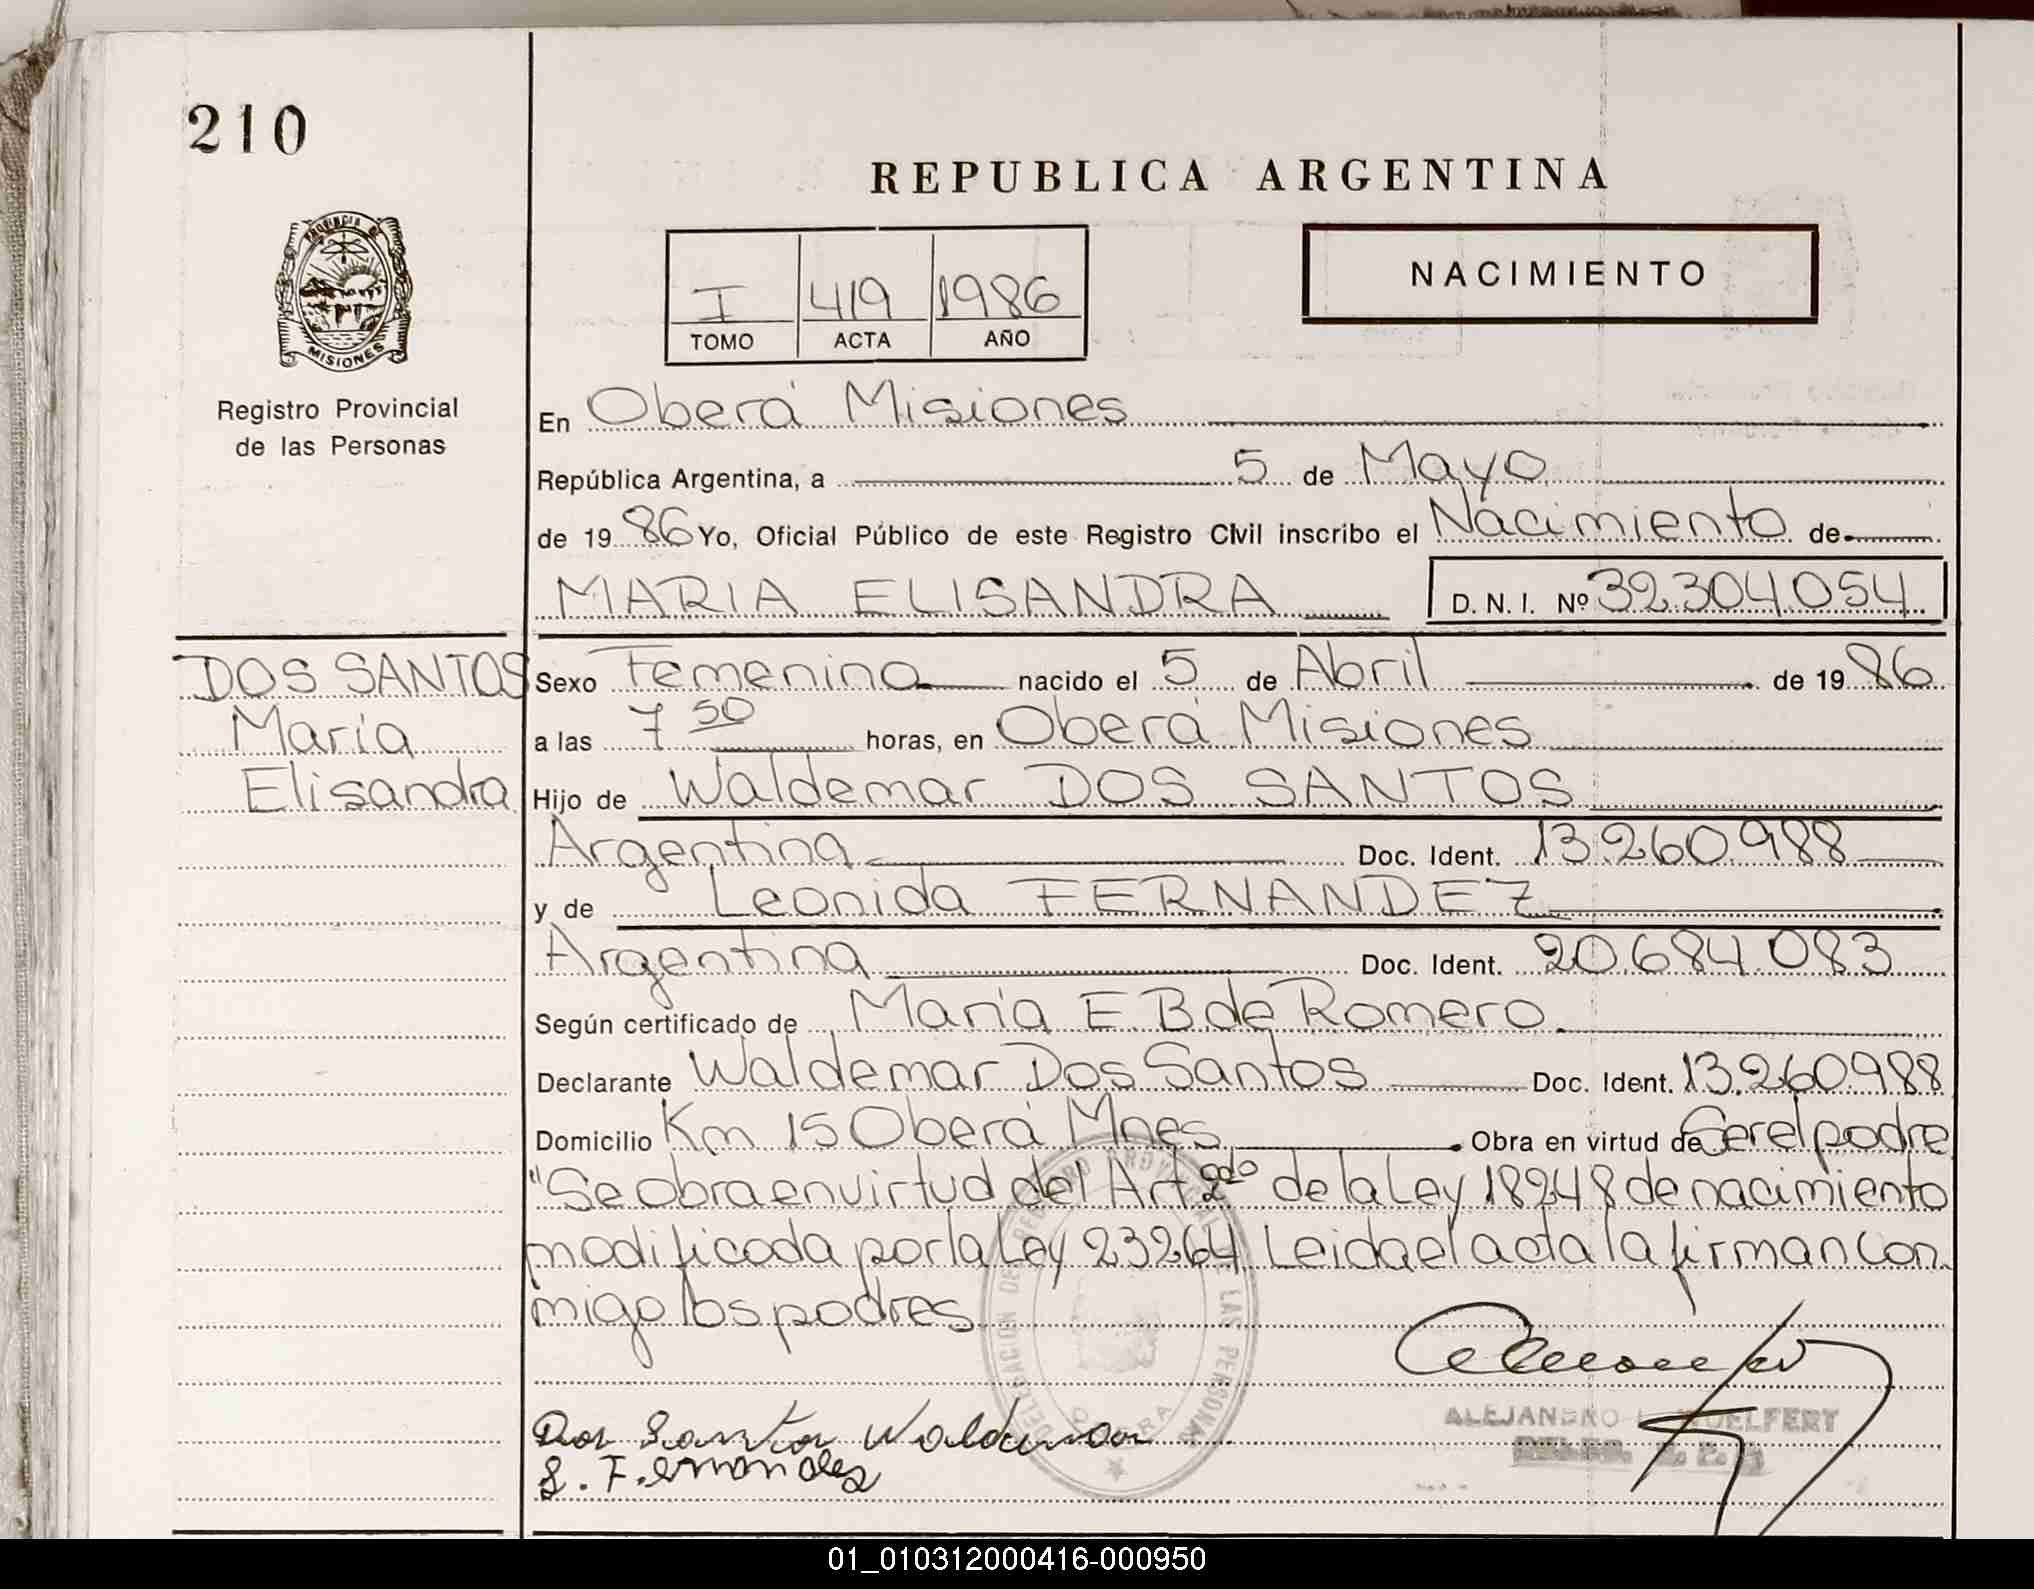 210
REPUBLICA ARGENTINA
PROVINCIA DE
MISIONES
Registro Provincial
de las Personas
I 419 1986
TOMO ACTA AÑO
NACIMIENTO
En Oberá Misiones
República Argentina, a 5 de Mayo
de 19 86 Yo, Oficial Público de este Registro Civil inscribo el Nacimiento de
MARIA ELISANDRA D. N. I. Nº 32.304.054
DOS SANTOS
María
Elisandra
Sexo Femenino nacido el 5 de Abril de 19 86
a las 7 50 horas, en Oberá Misiones
Hijo de Waldemar DOS SANTOS
Argentina Doc. Ident. 13.260.988
y de Leonida FERNANDEZ
Argentina Doc. Ident. 20.684.083
Según certificado de María E B de Romero
Declarante Waldemar Dos Santos Doc. Ident. 13.260.988
Domicilio Km 15 Oberá Mnes Obra en virtud de Ser el padre
"Se obra en virtud del Art 2do de la Ley 18248 de nacimiento
modificada por la Ley 23264 Leida el acta la firman con
migo los padres
DELEGACION DEL REGISTRO PROVINCIAL DE LAS PERSONAS
OBERA
Dos Santos Waldemar
L. Fernandez
ALEJANDRO
01_010312000416-000950